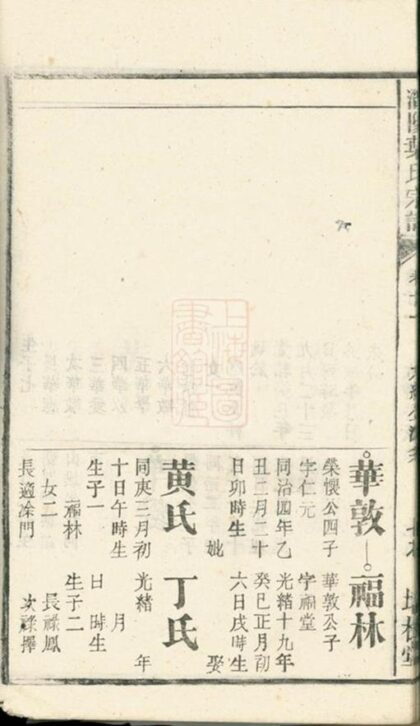 氏宗譜
華敦
榮懷公四子
字仁元
同治四年乙
丑二月二十
日卯時生
妣
黄氏
同庚三月初
十日午時生
生子一
福林
女二
長適涂門
福林
華敦公子
字福堂
光緒十九年
癸巳正月初
六日戌時生
娶
丁氏
光緒 年
月
日 時生
生子二
長祿鳳
次祿擇
上海圖書館藏